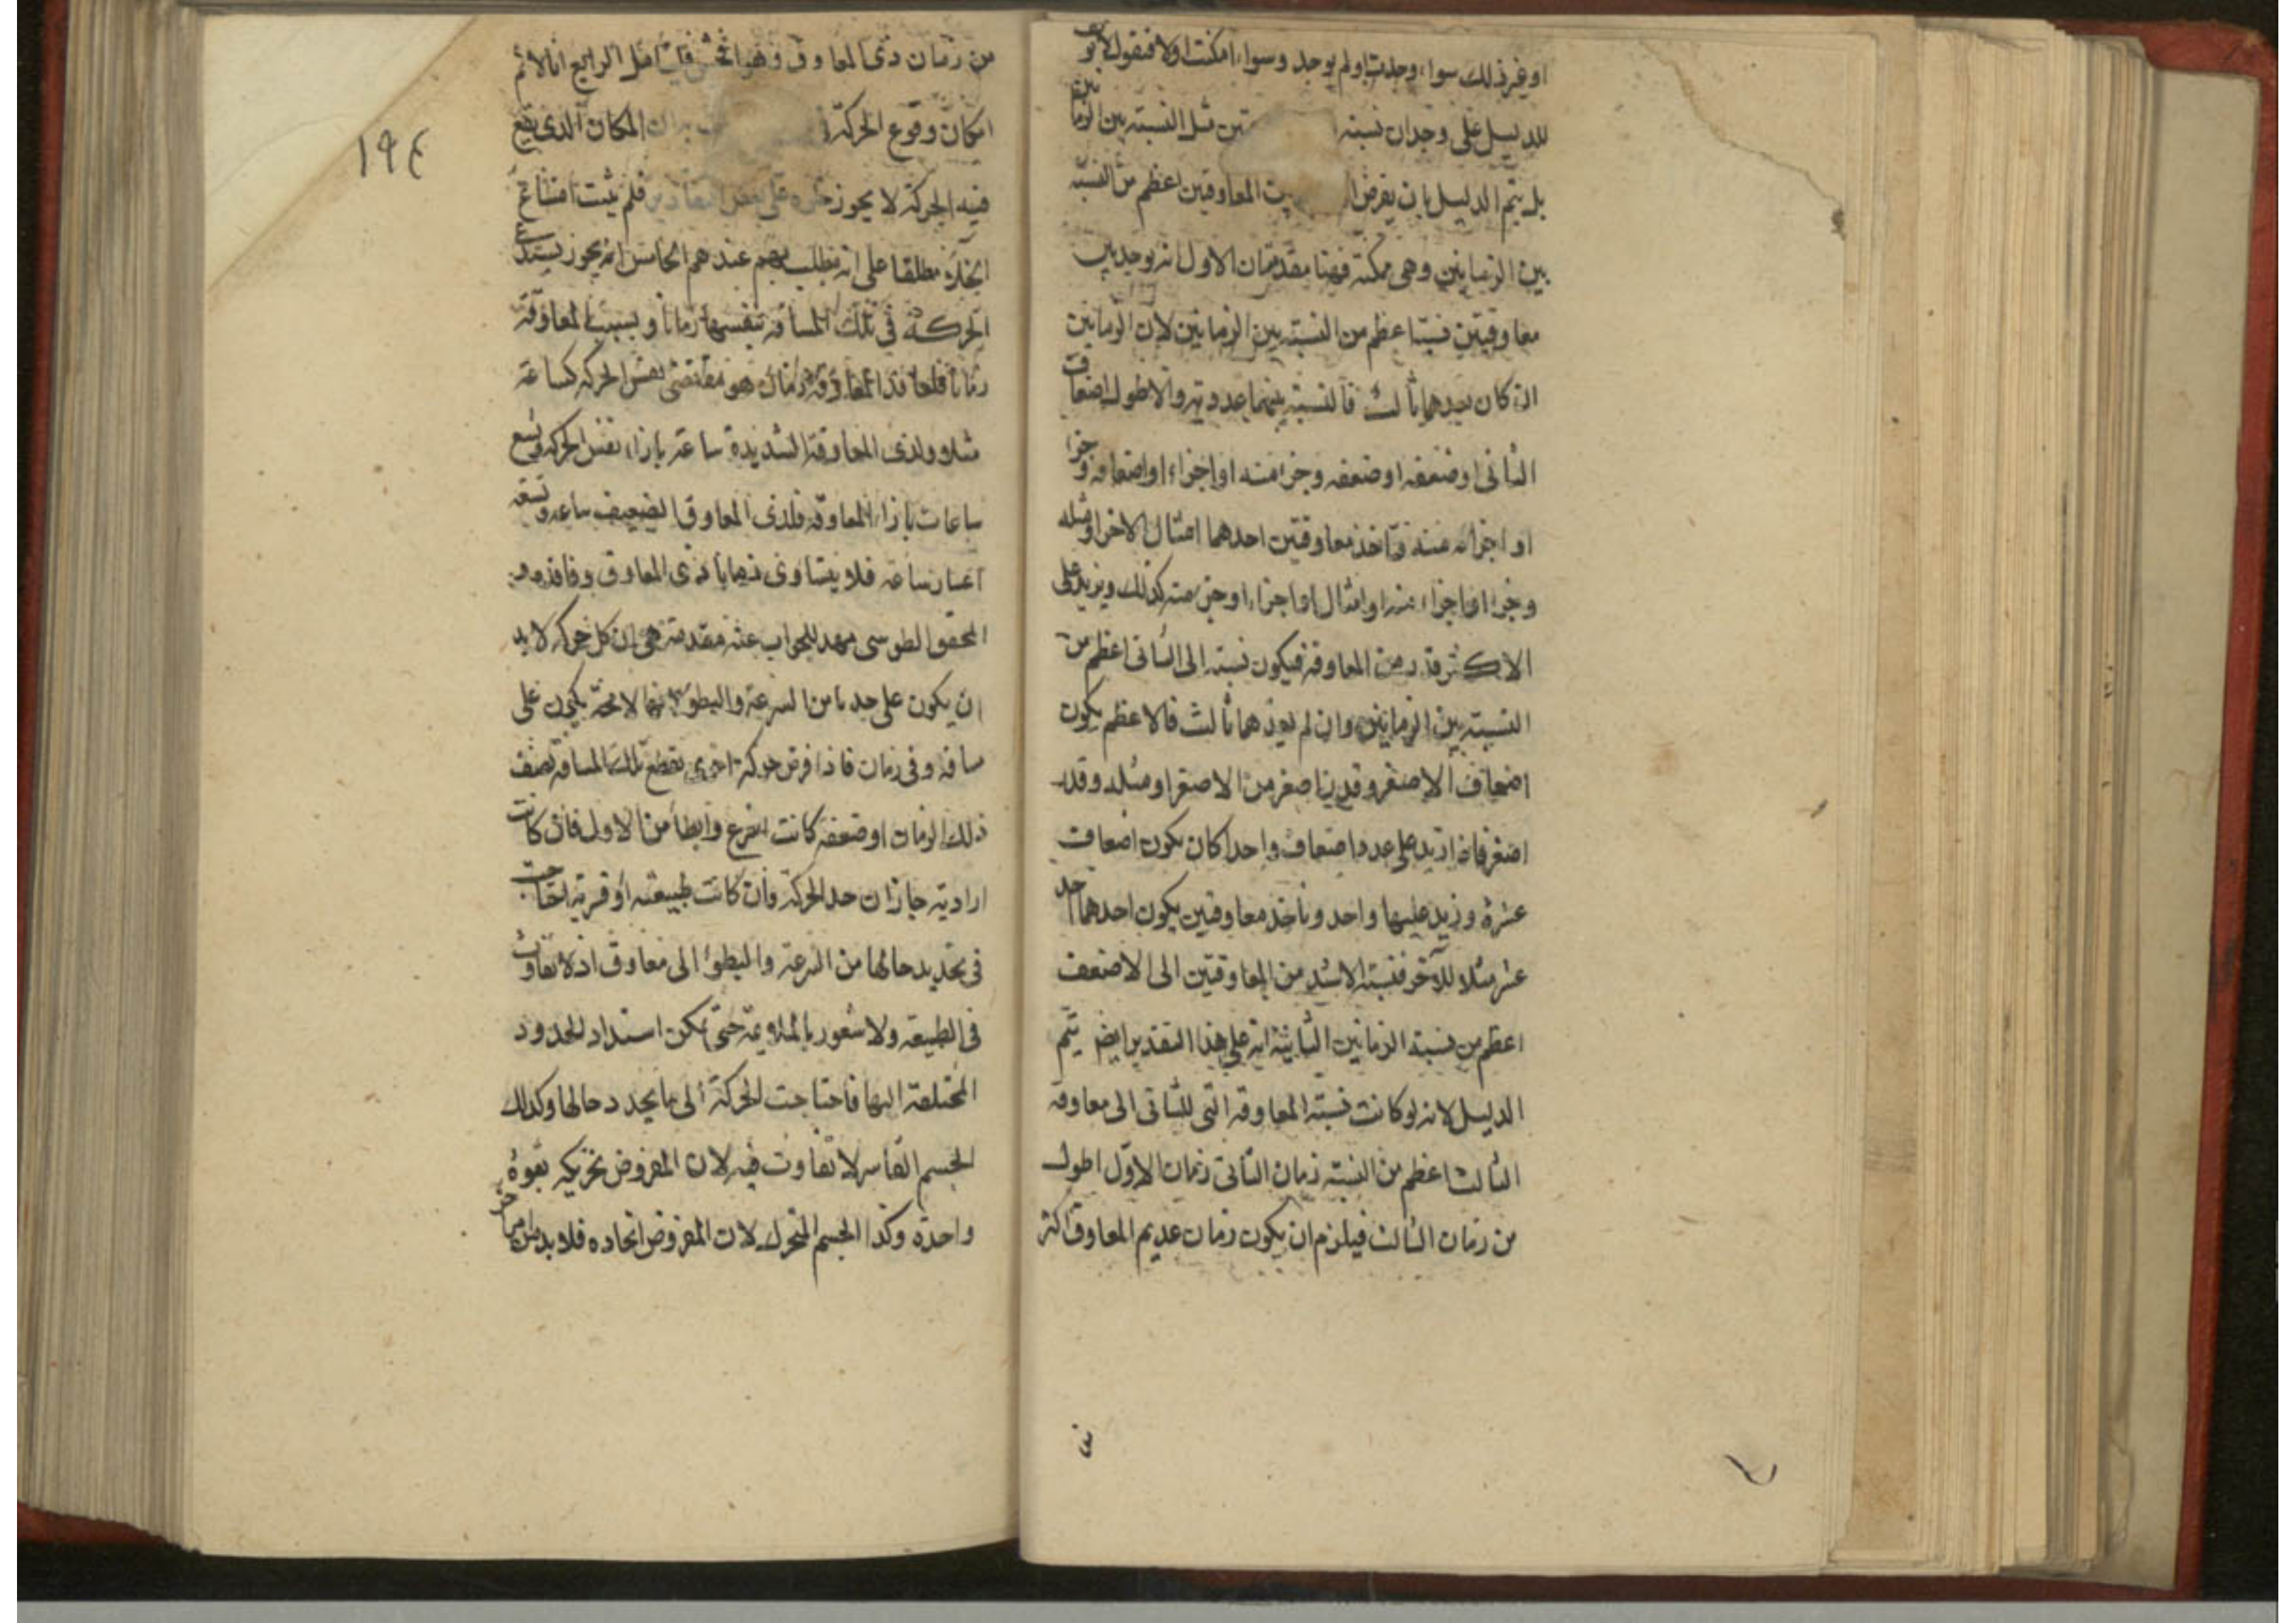 او غير ذلك سواء وجدت او لم يوجد وسواء امكنت اولا فنقول لا يو
للدليل على وجدان نسبة تين مثل النسبة بين الزما نين
بل يتم الدليل بان يفرض المعاوقين اعظم من النسبة
بين الزمانين وهى ممكنة فههنا مقدمتان الاول انه يوجد بين
معاوقتين نسبة اعظم من النسبة بين الزمانين لان الزمانين
ان كان يعدهما ثالث فالنسبة بينهما عددية والاطول اضعاف
الثانى او ضعفه او ضعفه وجزء منه او اجزاء او اضعافه وجزء
او اجزائه منه فنأخذ معاوقتين احدهما امثال الاخر او مثله
وجزء او اجزاء منه او امثال او اجزاء او جزء منه كذلك ويزيد على
الاكثر قدر من المعاوقة فيكون نسبته الى الثانى اعظم من
النسبة بين الزمانين وان لم يعدهما ثالث فالاعظم يكون
اضعاف الاصغر وقدرنا اصغر من الاصغر او مثله وقدر
اصغر فاذا زيد على عدد اضعاف واحد كان يكون اضعاف
عشرة وزيد عليها واحد ونأخذ معاوقتين يكون احدهما احد
عشر مثلا للآخر فنسبة الاشد من المعاوقتين الى الاضعف
اعظم من نسبة الزمانين الثانية انه على هذا التقدير ايض يتم
الدليل لانه لو كانت نسبة المعاوقة التى للثانى الى معاوقة
الثالث اعظم من النسبة زمان الثانى زمان الاول اطول
من زمان الثالث فيلزم ان يكون زمان عديم المعاوق اكثر
١٩٤
من زمان ذى المعاوق وهو افحش فليتأمل الرابع انا لا نم
امكان وقوع الحركة المكان الذى يقع
فيه الحركة لا يجوز خلوه على بعض التقادير فلم يثبت امتناع
الخلاء مطلقا على انه مطلبهم عندهم الخامس انه يجوز يستدعى
الحركة فى تلك المسافة بنفسها زمانا وبسبب المعاوقة
زمانا فلفاقد المعاوقة زمان هو مقتضى نفس الحركة كساعة
مثلا ولذى المعاوقة الشديدة ساعة بازاء نفس الحركة وتسع
ساعات بازاء المعاوقة فلذى المعاوق الضعيف ساعة وتسعة
اعشار ساعة فلا يتساوى زمانا ذى المعاوق وفاقده و
المحقق الطوسى مهد للجواب عنه مقدمة هى ان كل حركة لا بد
ان يكون على حد ما من السرعة والبطؤ لانها لا محة يكون على
مسافة وفى زمان فاذا فرض حركة اخرى تقطع تلك المسافة نصف
ذلك الزمان او ضعفه كانت اسرع وابطأ من الاول فان كانت
ارادية جاز ان حد الحركة وان كانت طبيعته او قسرية احتاجت
فى تحديد حالها من السرعة والبطؤ الى معاوق اذ لا تفاوت
فى الطبيعة ولا شعور بالملايمة حتى يمكن استناد الحدود
المختلفة اليها فاحتاجت الحركة الى ما يحدد حالها وكذلك
الجسم القاسر لا تفاوت فيه لان المفروض تحريكه بقوة
واحدة وكذا الجسم المتحرك لان المفروض اتحاده فلا بد من